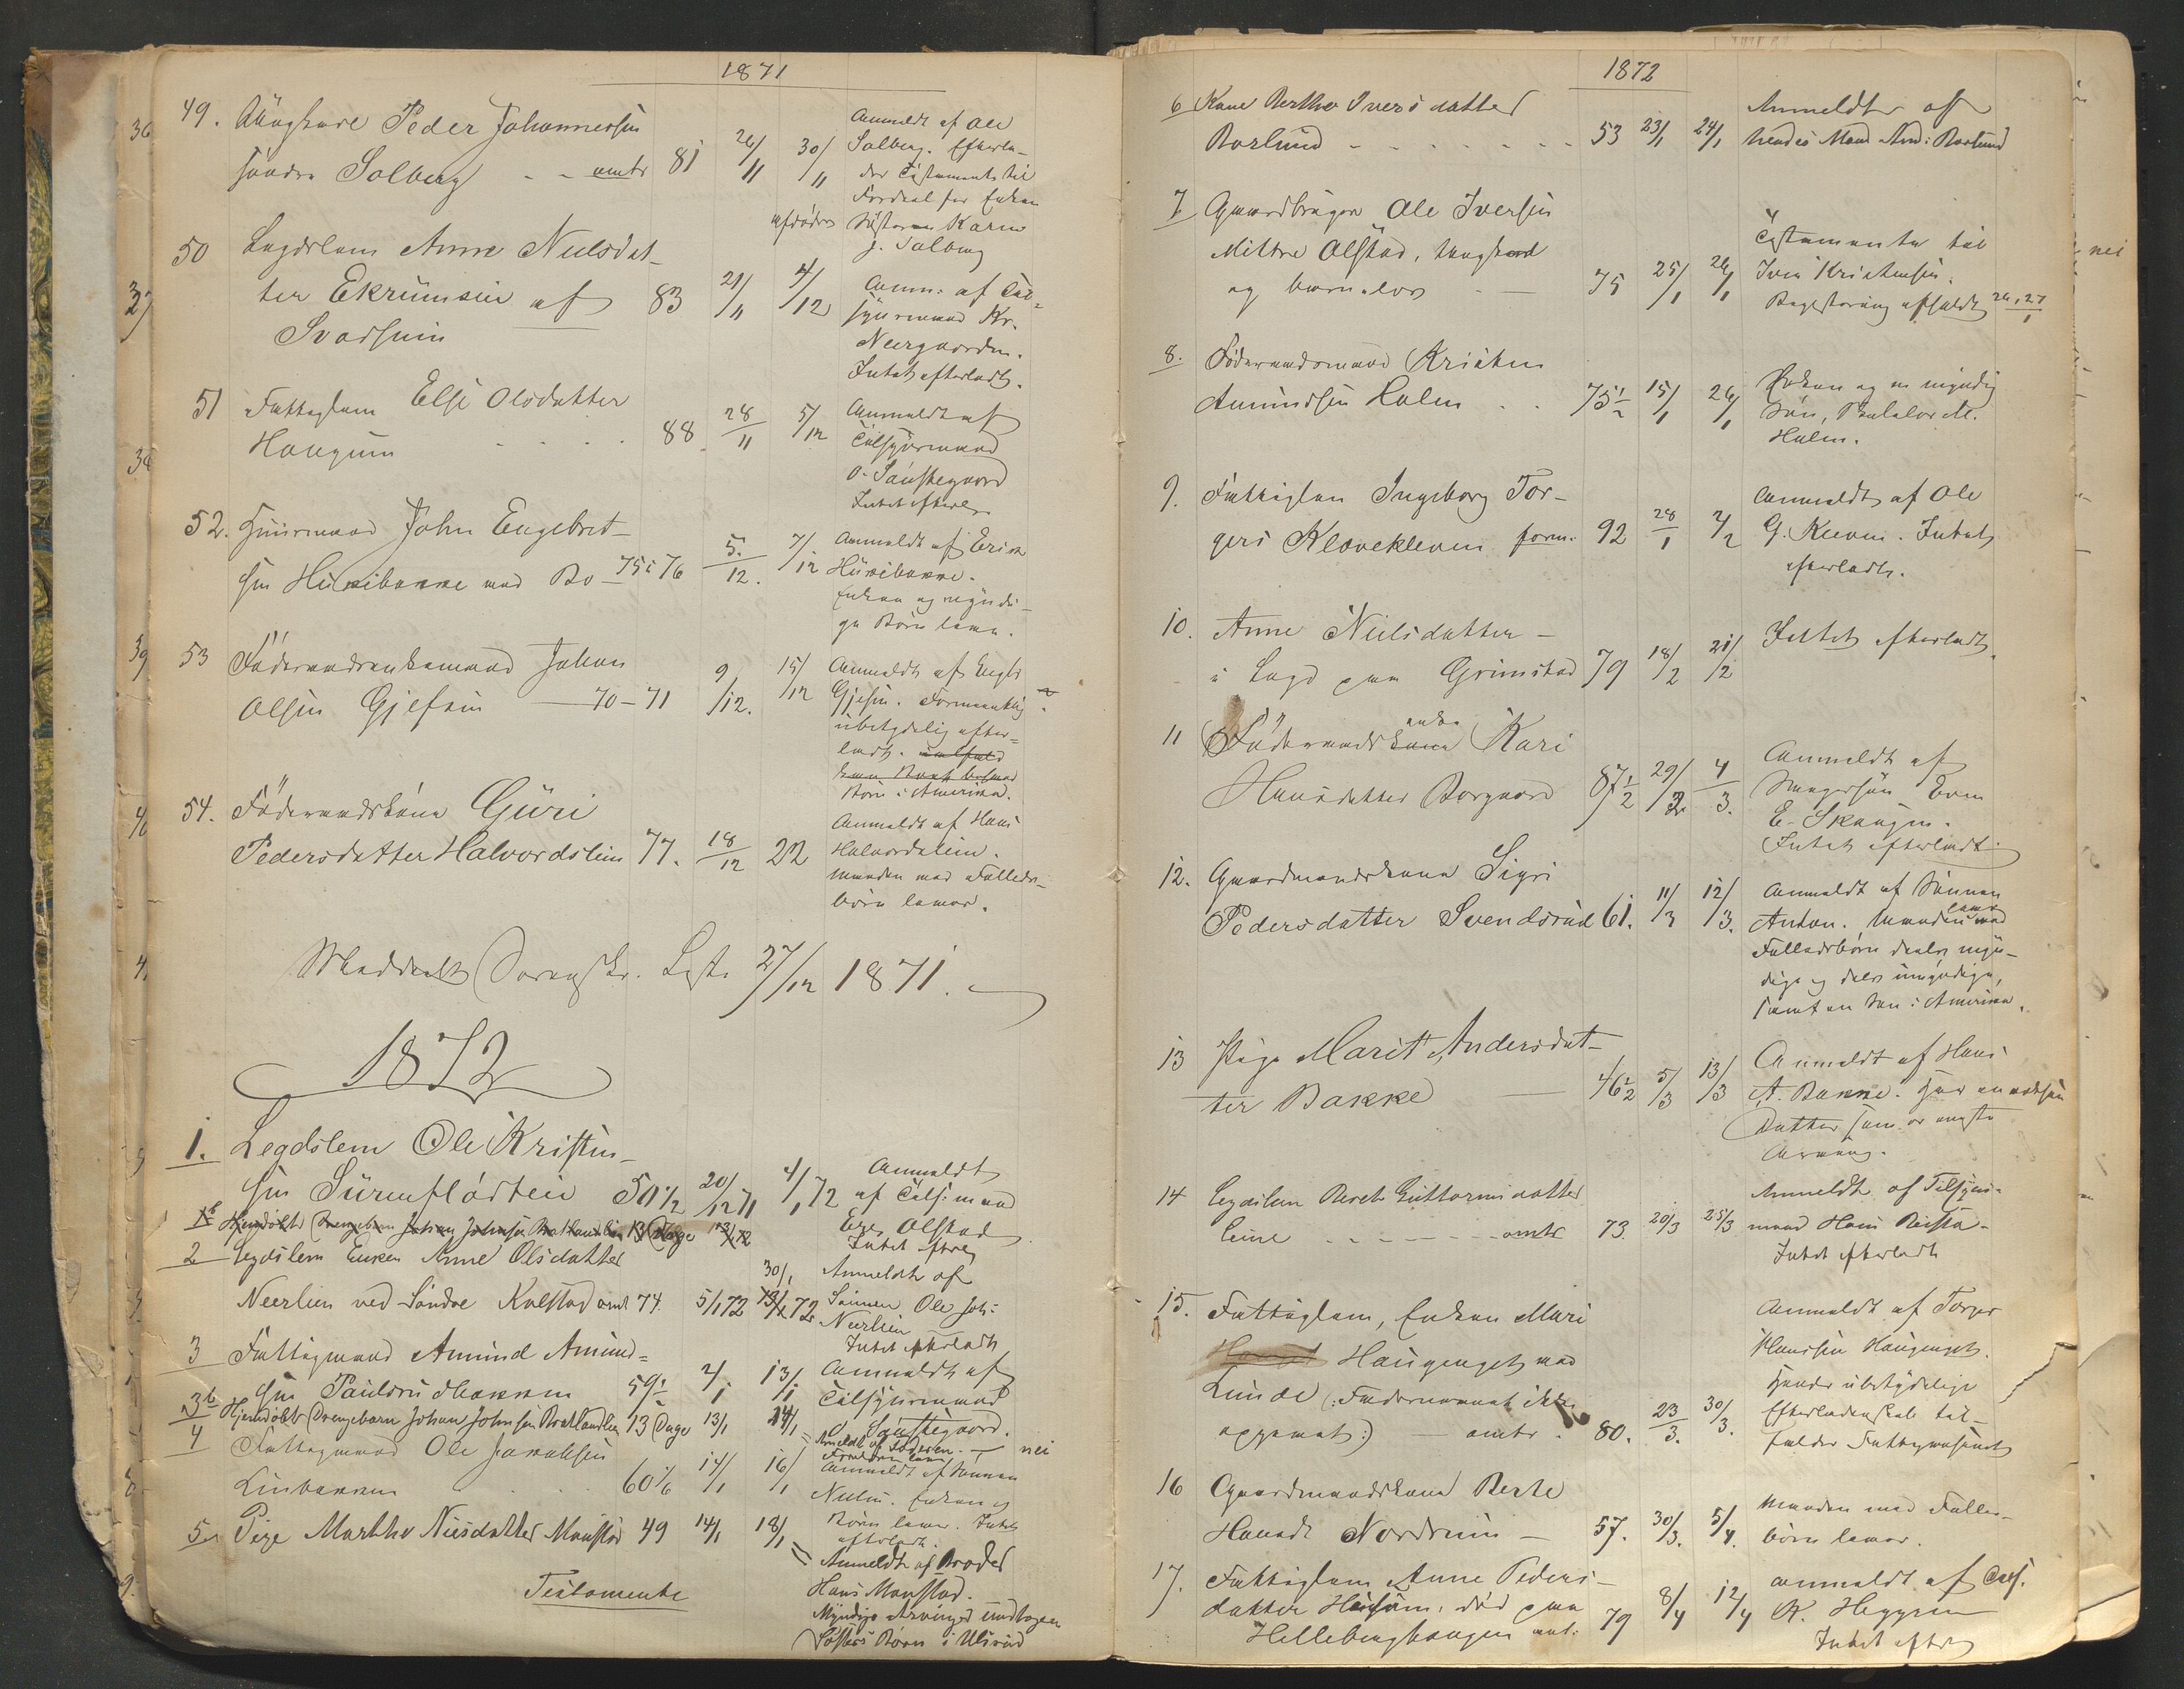 1871
49. Ungkarl Peder Johannessen
søndre Solberg - - omtr 81 26/11 30/11
Anmeldt af Ole
Solberg. Efterla-
der Testamente til
Fordeel for Enken
afdødes Søsteren Karen
J. Solberg
50 Legdslem Anne Nielsdat-
ter Ekrumsein af 83 21/11 4/12
Anm: af Til-
synsmand Kr.
Neergaarden.
Intet efterladt.
51 Fattiglem Else Olsdatter
Haugum . . . . 88 28/11 5/12
Anmeldt af
Tilsynsmand
O. Saustegaard
Intet efterl.
52. Huusmand John Engebret-
sen Husebakke med Bo- 75 i 76 5./12. 7/12
Anmeldt af Erik
Husebakke.
Enken og myndi-
ge Børn leve.
53 Føderaadsenkemand Johan
Olsen Gjefsen — 70-71 9/12. 15/12
Anmeldt af Engbr
Gjefsen. Formentlig
ubetydelig efter-
ladt.
Børn i Amerika.
54. Føderaadskone Guri
Pedersdatter Halvordslien 77. 18/12 22
Anmeldt af Hans
Halvordslien.
Manden med Fælleds-
børn lever.
Meddeelt Sorenskr. Liste 27/12 1871.
1872
1. Legdslem Ole Kristen-
sen Surenflødtein 50 1/2 20/12 71 4/1 72
Anmeldt
af Tils:mand
Olstad
Intet efterl.
1b Hjemdøbt Drengebarn Johan Johnsen Brathaudlien 13 Dage 13/1 72
2 Legdslem Enken Anne Olsdatter
Neerlien ved Søndre Kalstad omtr 74. 5/1 72 13/1 72
30/1 Anmeldt af
Sønnen Ole Joh:
Neerlien
Intet efterladt
3 Fattigmand Amund Amund-
sen Paulsrudbakken 59 1/2 2/1 13/1
Anmeldt af
Tilsynsmand
O. Saustegaard.
3b Hjemdøbt Drengebarn Johan Johnsen Brathaudlien 13 Dage 13/1 14/1
Anmeldt af Faderen. — nei
Forældrene leve
4 Fattigmand Ole Jakobsen
Linbakken . . . 60 1/6 14/1 16/1
Anmeldt af Sønnen
Niels. Enken og
Børn lever. Intet
efterladt.
5. Pige Marthe Nilsdatter Maustad 49 14/1 18/1
Anmeldt af Broder
Hans Maustad.
Myndige Arvinger undtagen
Søsters Børn i Ulsrud
Testamente
1872
6 Kone Berthe Iversdatter
Borlund - - - - - - - 53 23/1 24/1
Anmeldt af
hendes Mand And: Borlund
7 Gaardbruger Ole Iversen
Mittre Olstad, Ungkarl
og barnløs - — 75 25/1 26/1
Testamente til
Iver Kristensen.
Registrering afholdt 26, 27/1
8. Føderaadsmand Kristen
Amundsen Holen . . 75 1/2 15/1 26/1
Enken og en myndig
Søn,
Holen.
9. Fattiglem Ingeborg Tor-
gers Kløvekleven form. 92 28/1 2/2
Anmeldt af Ole
G. Kleven. Intet
efterladt.
10. Anne Nielsdatter -
i Legd paa Grimstad 79 18/2 21/2
Intet efterladt.
11 Føderaadskone enke Kari
Hansdatter Borgaard 87 1/2 29/2 4/3.
Anmeldt af
Svigersøn Even
E. Skaugen.
Intet efterladt
12. Gaardmandskone Sigri
Pedersdatter Svendsrud 61. 11/3 12/3.
Anmeldt af Sønnen
Anton. Manden lever med
Fælledsbørn deels myn-
dige og deels umyndige,
samt en Søn i Amerika.
13 Pige Marit Andersdat-
ter Bakke — 46 1/2 5/3 13/3
Anmeldt af Hans
A. Bakke. Har en voksen
Datter som er eneste
Arving.
14 Legdslem Berthe Guttormsdatter
Lerne - - - - - - - omtr 73. 20/3 25/3
Anmeldt af Tilsyns-
mand Hans Reista-
Intet efterladt
15. Fattiglem, Enken Mari
Haugenget ved
Lunde (: Fædrenavnet ikke
opgivet :) — omtr. 80. 23/3. 30/3.
Anmeldt af Torger
Hansen Haugenget.
Hendes ubetydelige
Efterladenskab til-
falder Fattigvæsenet
16 Gaardmandskone Berte
Hansdt Nordrum — 57. 30/3. 5/4.
Manden med Fælles-
børn lever.
17. Fattiglem Anne Peders-
datter Husum, død paa
Helleberghaugen omt: 79 8/4 12/4
Anmeldt af Tils.
K. Heggen
Intet efterl.
nei